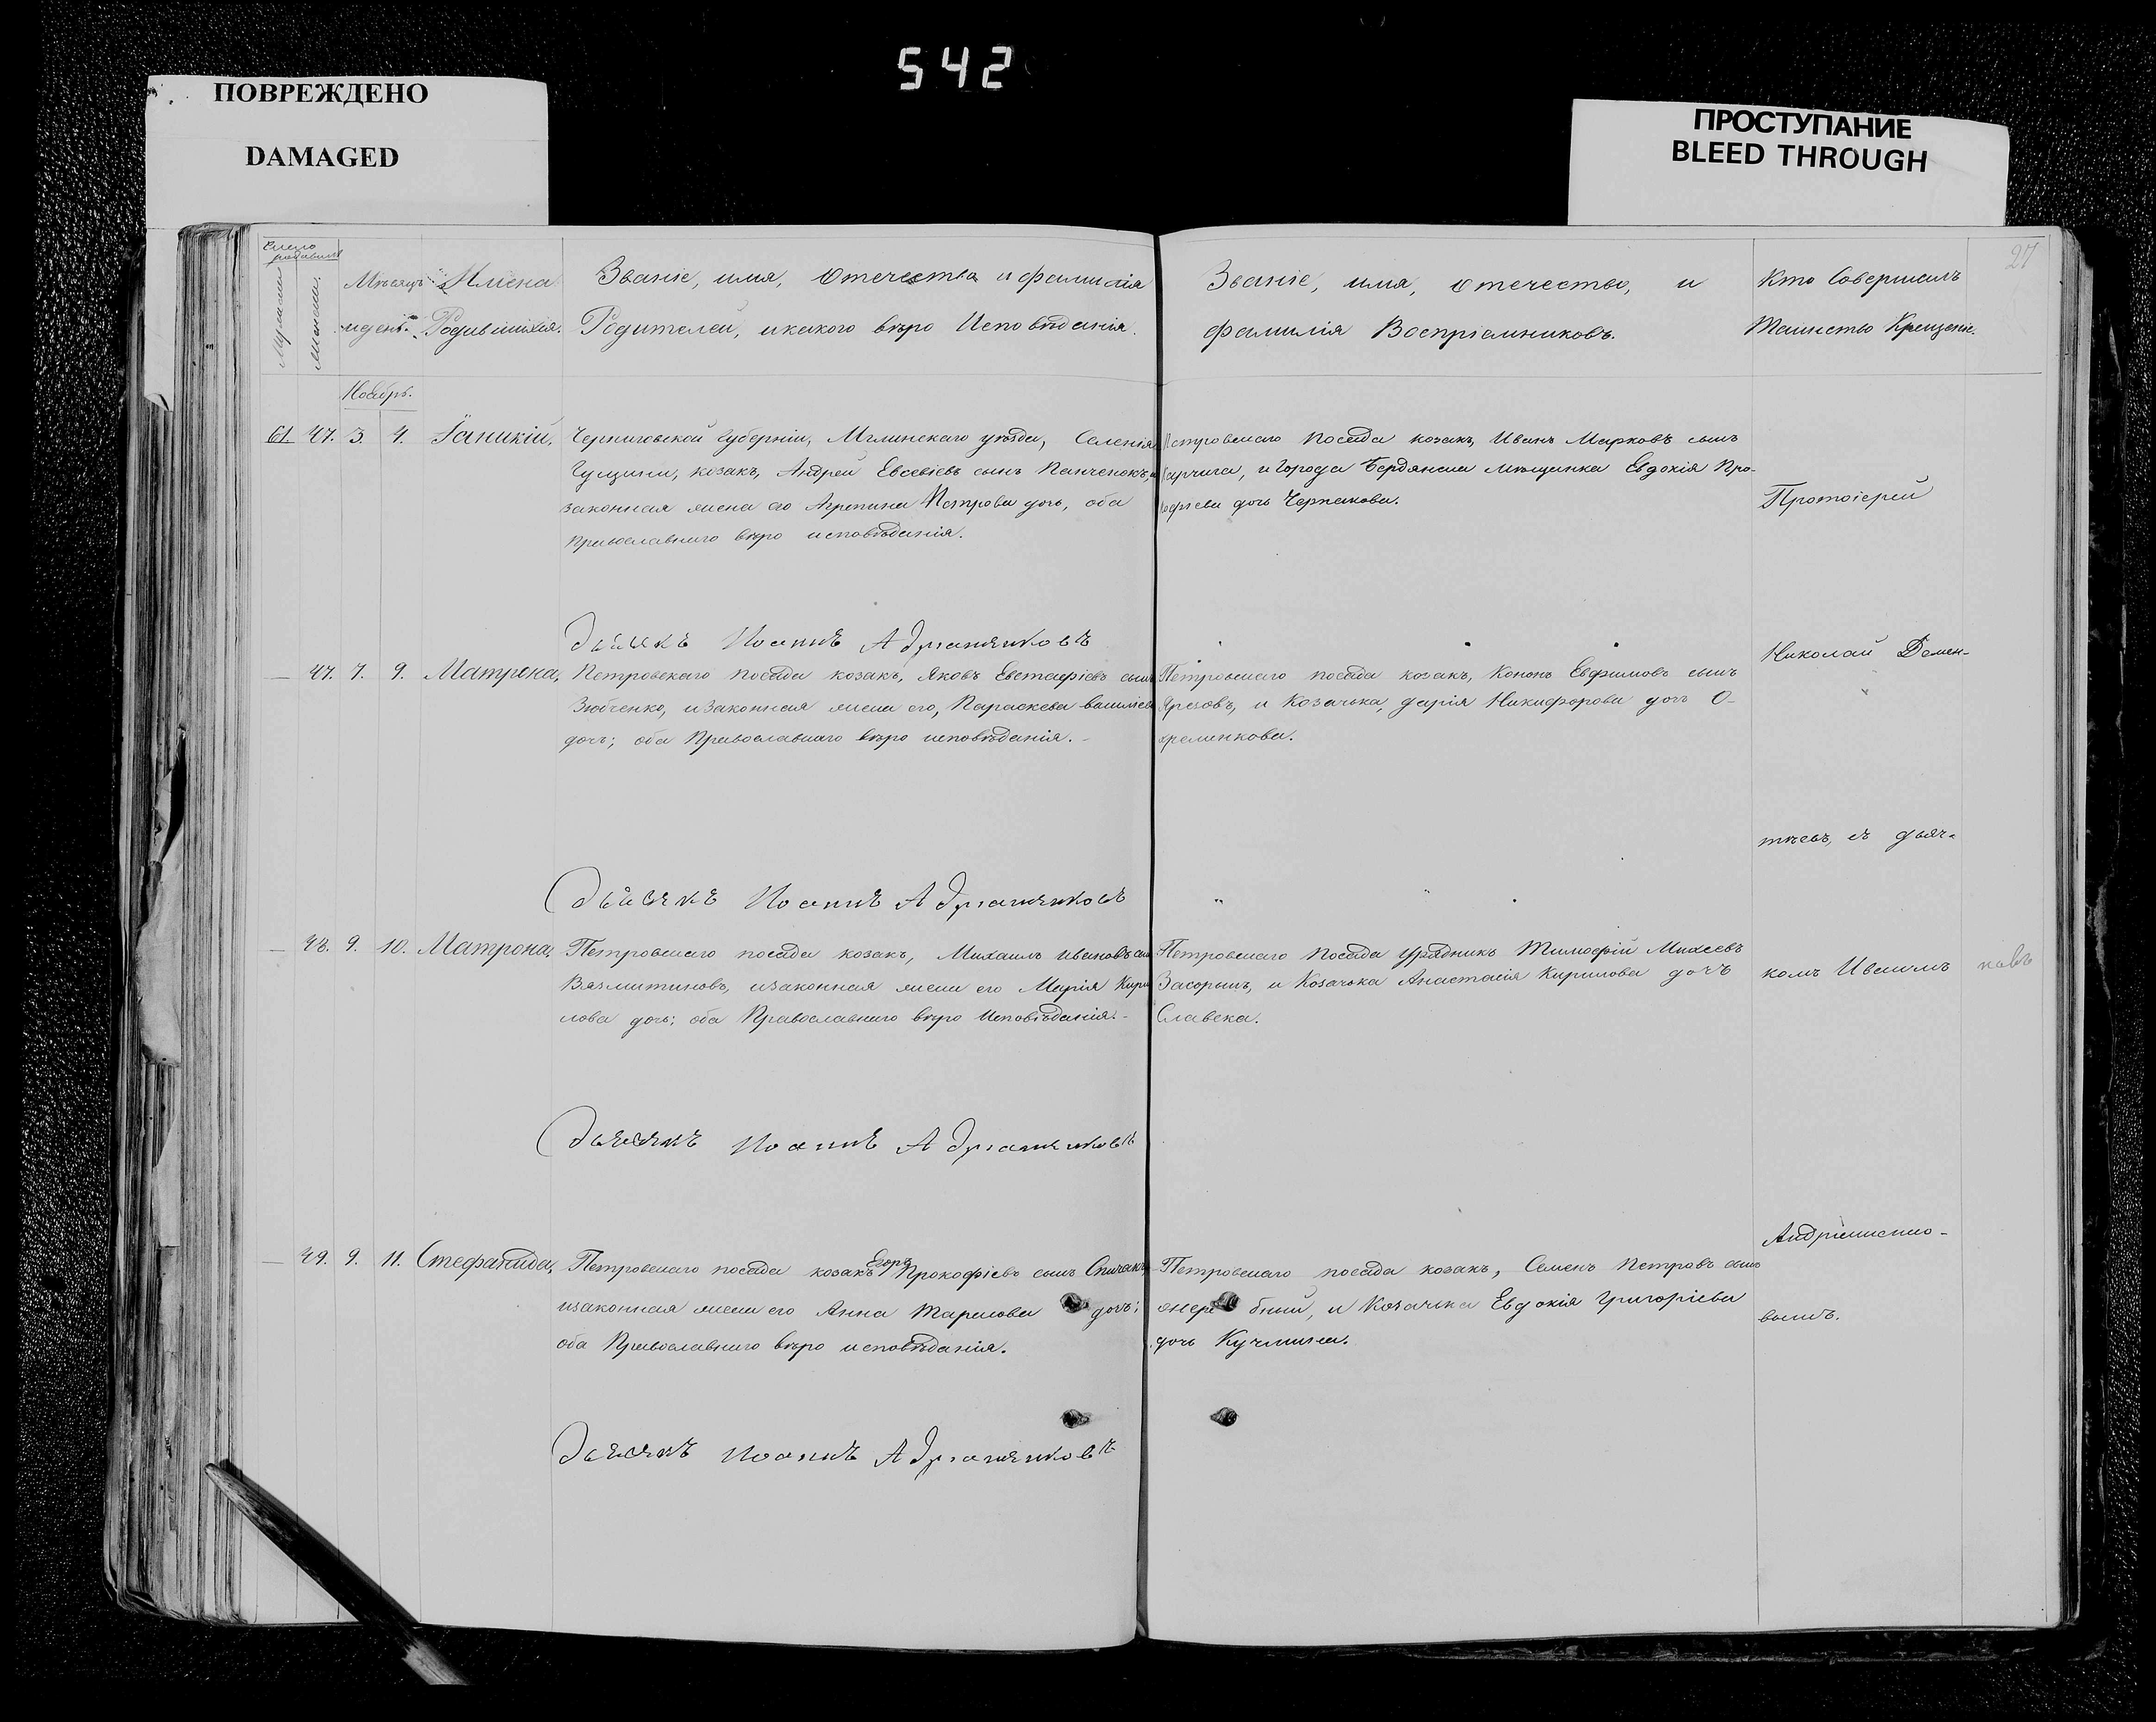 542
ПОВРЕЖДЕНО
DAMAGED
ПРОСТУПАНИЕ
BLEED THROUGH
27
Число
Мѣсяцъ
и день.
Имена
Родившихся.
Званіе, имя, отечества и фамилія
Родителей, и какого вѣро Исповѣданія.
Званіе, имя, отечество, и
фамилія Воспріемниковъ.
Кто Совершилъ
Таинство Крещенія.
Ноябрь.
61. 47. 3. 4. Іаникій,
Черниговской губерніи, Мглинскаго уѣзда, Селенія
козакъ, Андрей Евсевіевъ сынъ Панченокъ, и
законная жена его Агрепина Петрова дочь, оба
православнаго вѣро исповѣданія.
Петровскаго посада козакъ, Иванъ Марковъ сынъ
и города Бердянска мѣщанка Евдокія Про-
кофіева дочь Черпакова.
Протоіерей
Дьячекъ Иоаннъ Адріановъ
47. 7. 9. Матрона,
Петровскаго посада козакъ, Яковъ Евстафіевъ сынъ
Зюбченко, и законная жена его, Параскева Василіева
дочь; оба Православнаго вѣро исповѣданія.
Петровскаго посада козакъ, Кононъ Евфимовъ сынъ
и Козачька, Дарія Никифорова дочь О-
хременкова.
Николай Демен-
тьевъ, съ дьяч-
Иоаннъ
48. 9. 10. Матрона,
Петровскаго посада козакъ, Михаилъ Ивановъ сынъ
Вязмитиновъ, и законная жена его Марія Кири
лова дочь; оба Православнаго вѣро Исповѣданія.
Петровскаго посада урядникъ Тимофій Михеевъ
Засоринъ, и Козачька Анастасія Кирилова дочь
Славска.
комъ Иваномъ
Иоаннъ
49. 9. 11. Стефанида,
Петровскаго посада козакъ Егоръ Прокофіевъ сынъ Спичакъ,
и законная жена его Анна Тарасова дочь;
оба Православнаго вѣро исповѣданія.
Петровскаго посада козакъ, Семенъ Петровъ сынъ
и Козачька Евдокія Григоріева
дочь Кучмина.
вымъ.
Иоаннъ